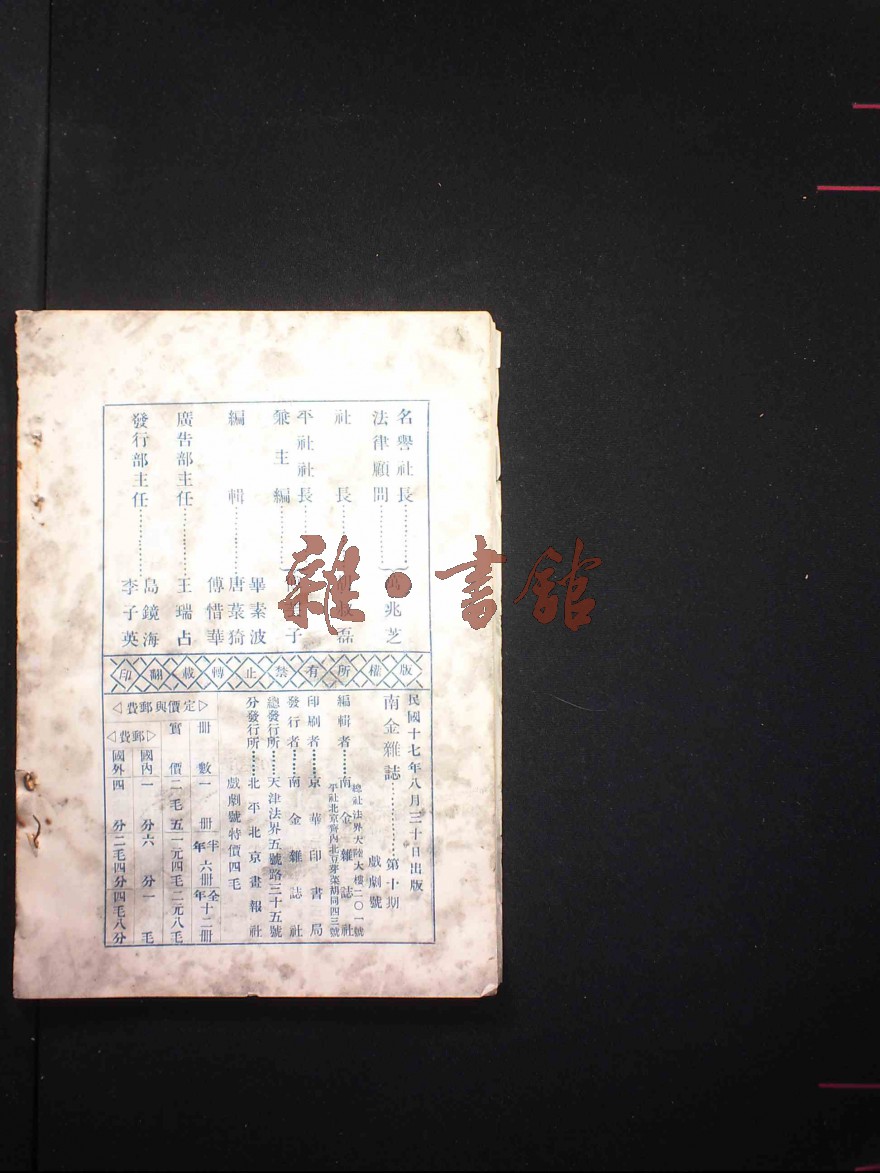 名譽社長
法律顧問……兆芝
社長……磊
平社社長
兼主編……子
編輯……畢素波
唐蓑猗
傅惜華
廣告部主任……王瑞占
發行部主任……島鏡海
李子英
版權所有禁止轉載翻印
民國十七年八月三十日出版
南金雜誌……第十期
戲劇號
總社法界大陸大樓二〇一號
編輯者……南金雜誌社
平社北京齊內北豆芽菜胡同四三號
印刷者……京華印書局
發行者……南金雜誌社
總發行所……天津法界五號路三十五號
分發行所……北平北京畫報社
戲劇號特價四毛
▷定價與郵費◁
冊數 一冊 半年六冊 全年十二冊
實價 二毛五 一元四毛 二元八毛
▷郵費◁
國內 一分 六分 一毛
國外 四分 二毛四分 四毛八分
雜·書館